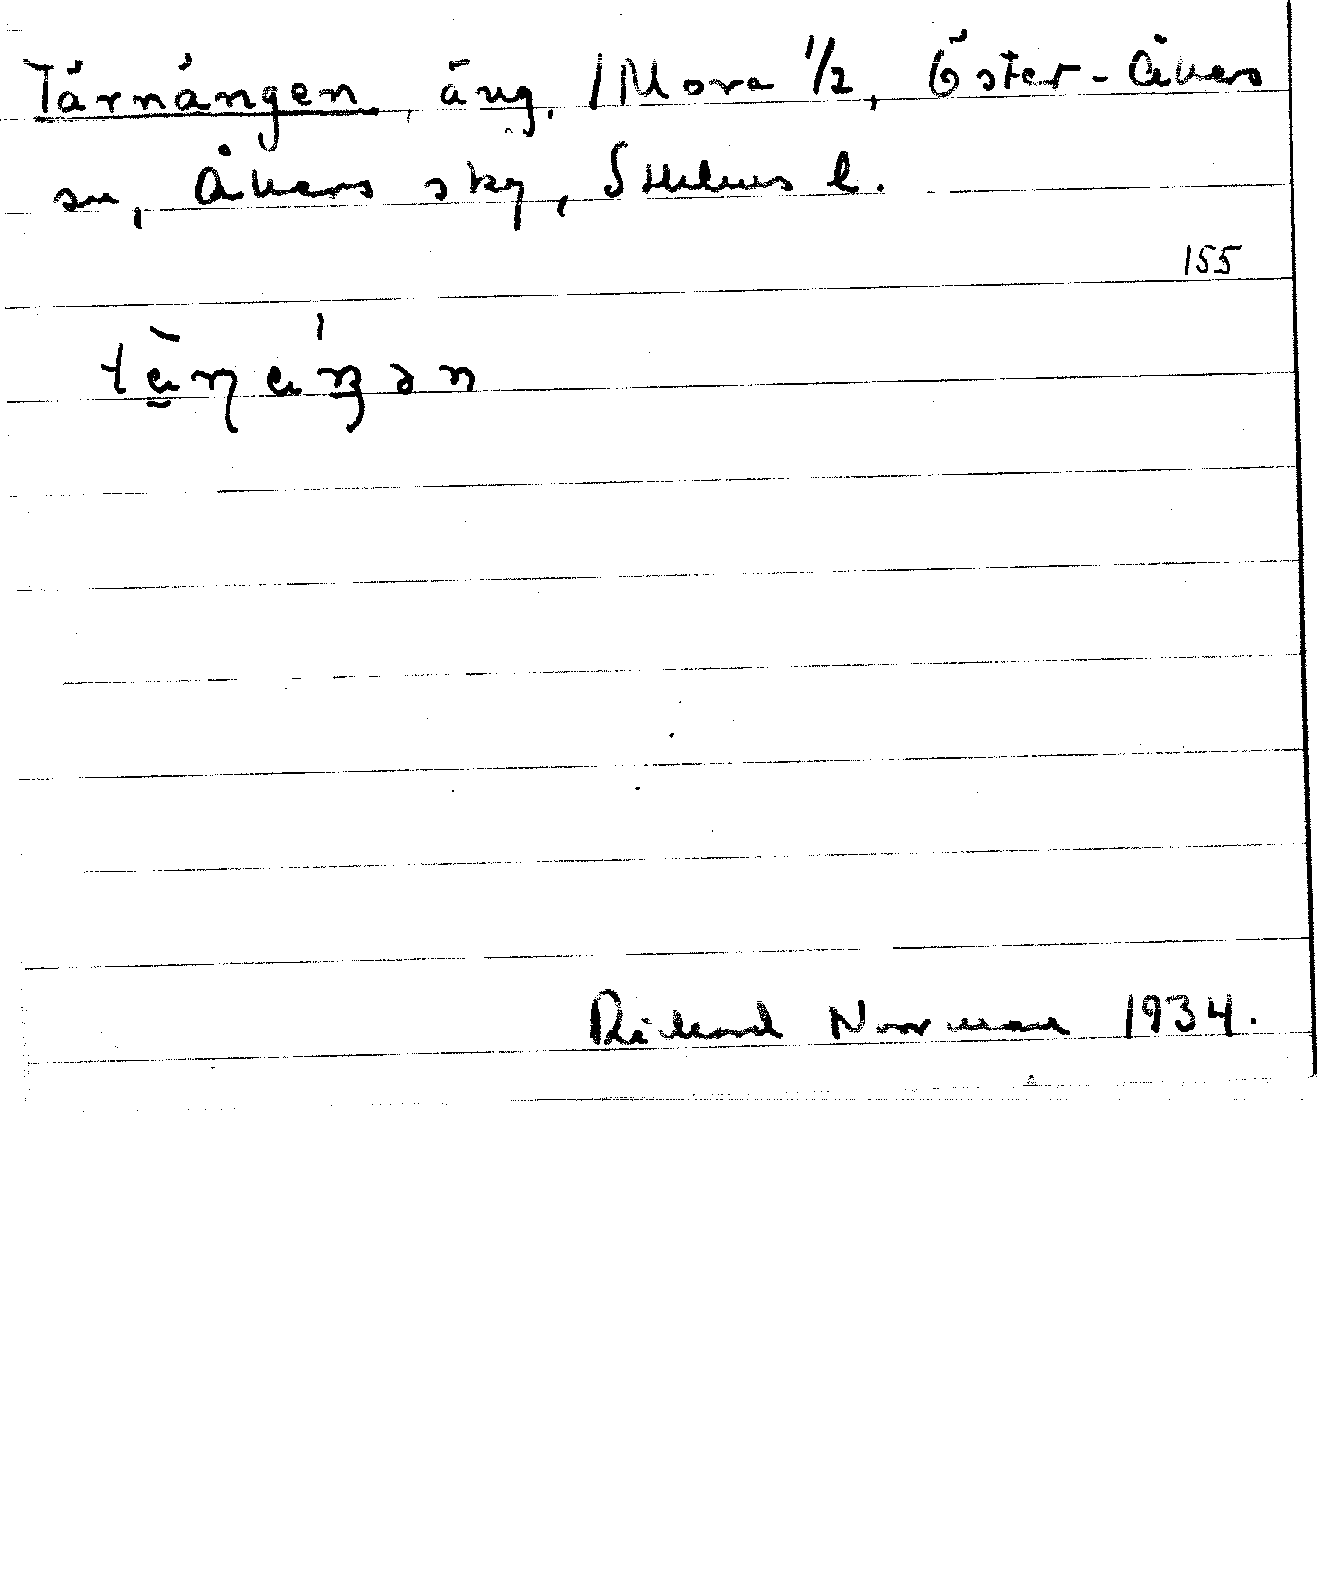 Tärnängen, äng, 1 Mora 1/2, Öster-Åkers
sn, Åkers sky, Sthlms l.
155
tæ̀ɳæŋən
Richard Norrman 1934.